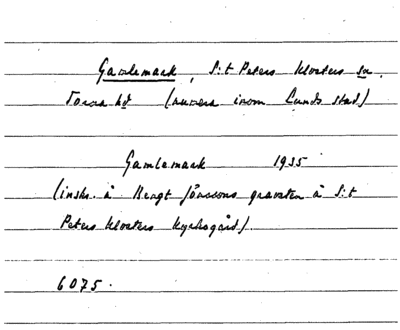 Gamlemark, S:t Peters Klosters sn,
Torna hd (numera inom Lunds stad)
Gamlemark 1935
(inskr. å Bengt Jönssons gravsten å S:t
Peters Klosters kyrkogård).
6075.